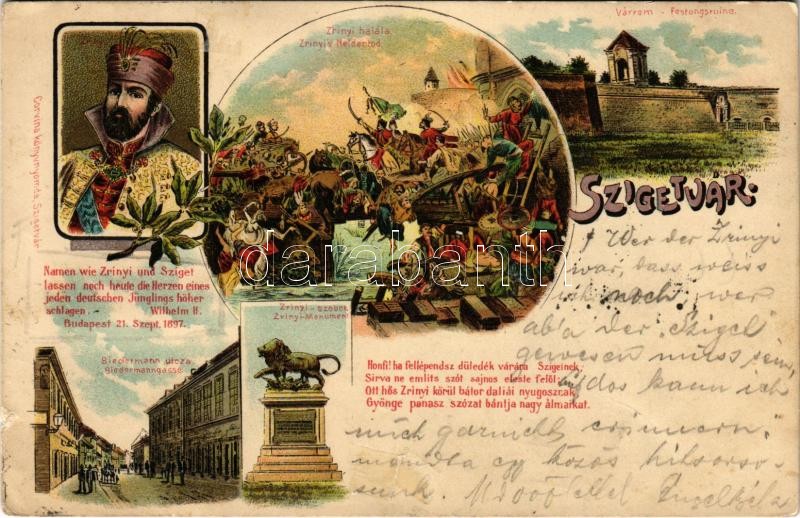 Zrinyi halála
Zrinyi's Heldentod
Várrom - Festungsruine.
Corvina könyvnyomda, Szigetvár
SZIGETVÁR.
darabanth
Namen wie Zrinyi und Sziget
lassen noch heute die Herzen eines
jeden deutschen Jünglings höher
schlagen. Wilhelm II.
Budapest 21. Szept. 1897.
Biedermann utcza.
Biedermanngasse.
Zrinyi-szobor
Zrinyi-Monument
Honfi! ha fellépendsz düledék várára Szigeinek,
Sirva ne emlits szót sajnos eleste felől:
Ott hős Zrinyi körül bátor daliái nyugosznak,
Gyönge panasz szózat bántja nagy álmaikat.
Wer der Zrinyi
war, dass weiss
ich noch, wer
aber der Sziget
gewesen muss sein,
dos kann ich
mich garnicht erinnern"
mondta egy közös hitsorso-
sunk.